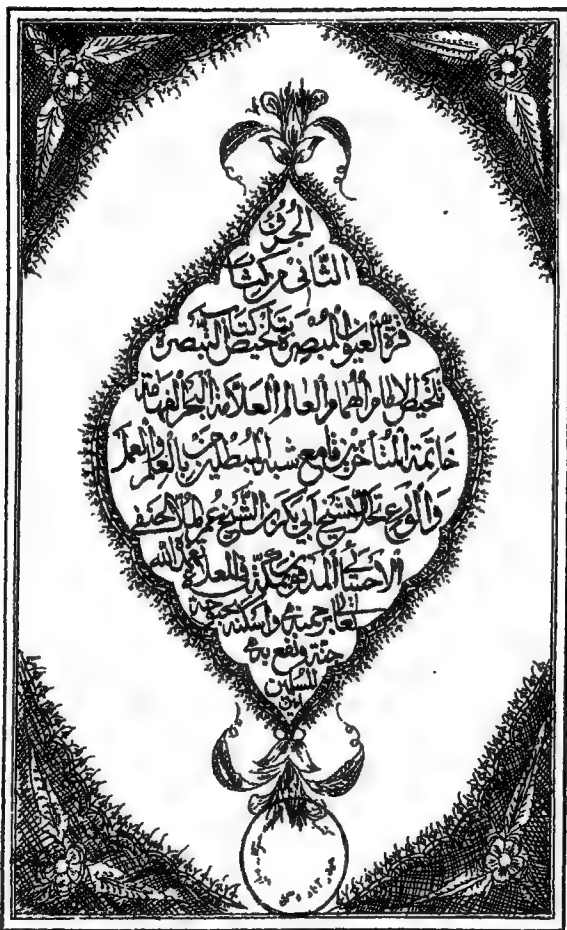 الجزء
الثاني من كتاب
قرة العيون المبصرة بتلخيص كتاب التبصرة
تلخيص الإمام الهمام والعالم العلامة البحر الفهامة
خاتمة المتأخرين قامع شبه المبطلين بالعلم والعمل
والورع الشيخ أبي بكر بن الشيخ عمر الملا الحنفي
الأحسائي المدفون بمكة في المعلاة تغمده الله
تعالى برحمته وأسكنه بحبوحة
جنته ونفع به
المسلمين
امين